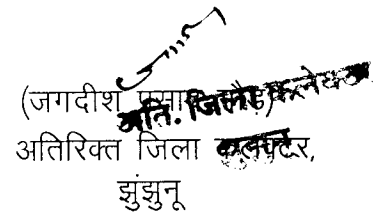 (जगदीश प्रसाद गौड़)
अति. जिला कलेक्टर
अतिरिक्त जिला कलेक्टर,
झुंझुनू